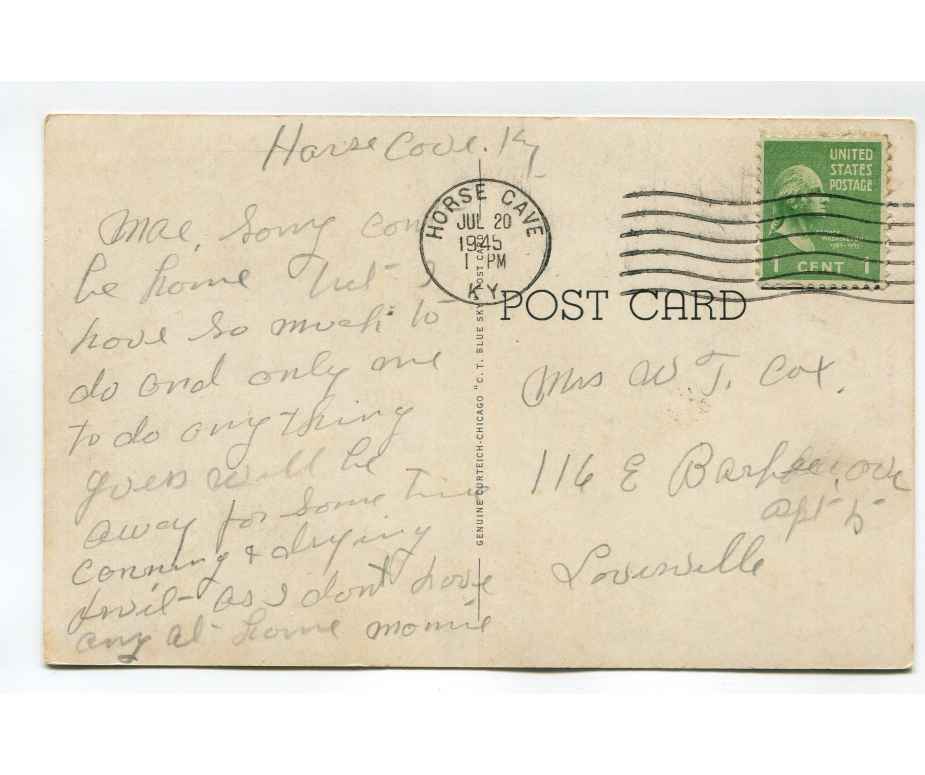 Horse Cave. Ky
HORSE CAVE
JUL 20
1945
1 PM
KY.
UNITED
STATES
POSTAGE
1 CENT 1
POST CARD
GENUINE CURTEICH-CHICAGO "C. T. BLUE SKY" POST CARD
Mae, Sorry
be home but I
have so much to
do and only me
to do any thing
guess will be
away for some time
canning & drying
fruit as I dont have
any at home
Mrs W. T. Cox.
116 E
apt
Louisville